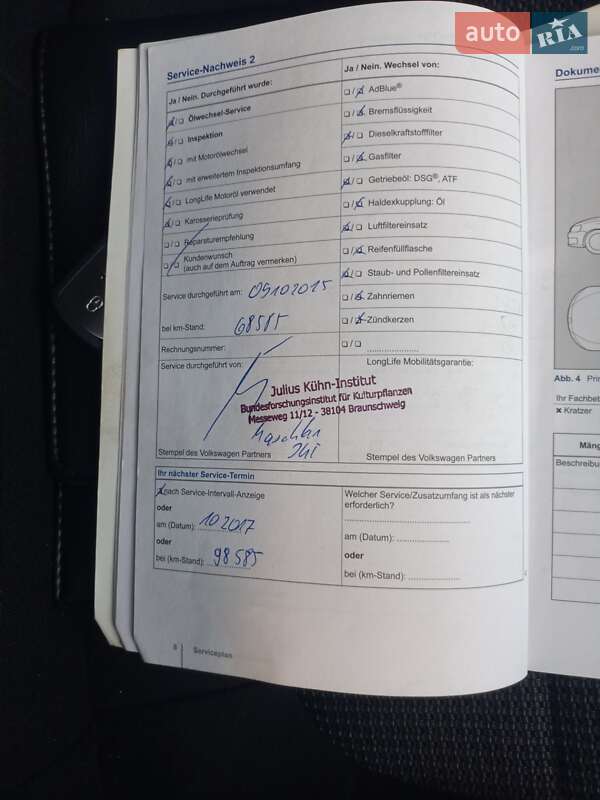 auto RIA.com
Service-Nachweis 2
Ja / Nein. Durchgeführt wurde:
Ölwechsel-Service
Inspektion
mit Motorölwechsel
mit erweitertem Inspektionsumfang
LongLife Motoröl verwendet
Karosserieprüfung
Reparaturempfehlung
Kundenwunsch
(auch auf dem Auftrag vermerken)
Service durchgeführt am: 09102015
bei km-Stand: 68585
Rechnungsnummer:
Service durchgeführt von:
Julius Kühn-Institut
Bundesforschungsinstitut für Kulturpflanzen
Messeweg 11/12 - 38104 Braunschweig
Stempel des Volkswagen Partners
Ja / Nein. Wechsel von:
AdBlue®
Bremsflüssigkeit
Dieselkraftstofffilter
Gasfilter
Getriebeöl: DSG®, ATF
Haldexkupplung: Öl
Luftfiltereinsatz
Reifenfüllflasche
Staub- und Pollenfiltereinsatz
Zahnriemen
Zündkerzen
LongLife Mobilitätsgarantie:
Stempel des Volkswagen Partners
Ihr nächster Service-Termin
nach Service-Intervall-Anzeige
oder
am (Datum): 10 2017
oder
bei (km-Stand): 98585
Welcher Service/Zusatzumfang ist als nächster
erforderlich?
am (Datum):
oder
bei (km-Stand):
8 Serviceplan
Dokume
Abb. 4 Prin
Ihr Fachbet
× Kratzer
Mäng
Beschreibu